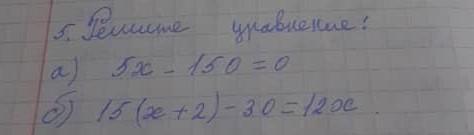 5. Решите уравнение:
а) 5x - 150 = 0
б) 15(x+2) - 30 = 12x.